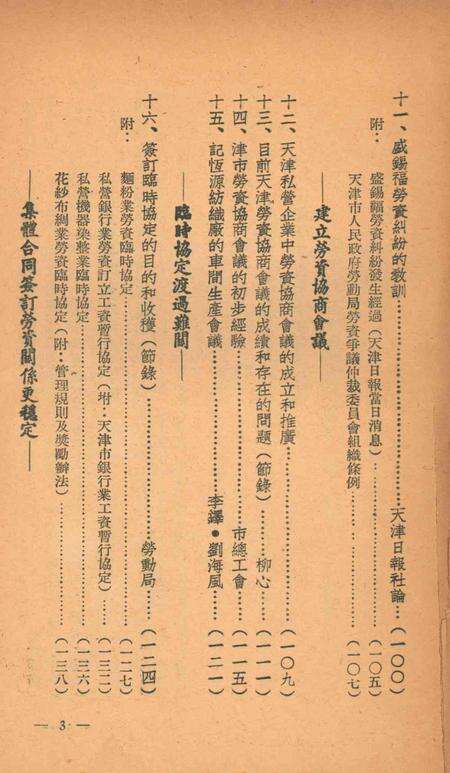 十一、盛錫福勞資糾紛的教訓……天津日報社論…（一〇〇）
附：盛錫福勞資糾紛發生經過（天津日報當日消息）……（一〇五）
天津市人民政府勞動局勞資爭議仲裁委員會組織條例……（一〇七）
——建立勞資協商會議——
十二、天津私營企業中勞資協商會議的成立和推廣……（一〇九）
十三、目前天津勞資協商會議的成績和存在的問題（節錄）……柳心…（一一一）
十四、津市勞資協商會議的初步經驗……市總工會…（一一五）
十五、記恆源紡織廠的車間生產會議……李鐸•劉海風…（一二一）
——臨時協定渡過難關——
十六、簽訂臨時協定的目的和收穫（節錄）……勞動局…（一二四）
附：麵粉業勞資臨時協定……（一二七）
私營銀行業勞資訂立工資暫行協定（附：天津市銀行業工資暫行協定）…（一三二）
私營機器染整業臨時協定……（一三六）
花紗布綢業勞資臨時協定（附：管理規則及獎勵辦法）……（一三八）
——集體合同簽訂勞資關係更穩定——
— 3 —